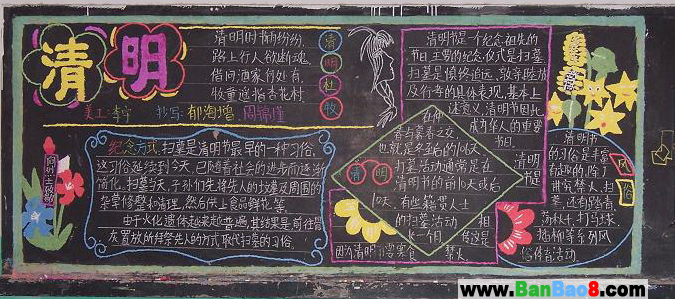 清明
清明时节雨纷纷，
路上行人欲断魂。
借问酒家何处有，
牧童遥指杏花村
清
明
杜
牧
美工：李宁 抄写：郁海增 周锦瑾
纪念方式：扫墓是清明节最早的一种习俗，
这习俗延续到今天，已随着社会的进步而逐渐
简化。扫墓当天，子孙们先将先人的坟墓及周围的
杂草修整和清理，然后供上食品鲜花等。
由于火化遗体越来越普遍，其结果是前往骨
灰置放所拜祭先人的方式取代扫墓的习俗。
清明节是一个纪念祖先的
节日，主要的纪念仪式是扫墓，
扫墓是慎终追远、敦亲睦族
及行孝的具体表现，基本上
述意义，清明节因此
成为华人的重要
节日。
清明
节是
在仲
春与暮春之交，
也就是冬至后的106天
清 明
扫墓活动通常是在
清明节的前10天或后
10天。有些籍贯人士
的扫墓活动
长一个月
相
传这是
因为清明节要寒食
禁火
风
俗
清明节
的习俗是丰富
有趣的，除了
讲究禁火、扫
墓，还有踏青、
荡秋千、打马球、
插柳等系列风
俗体育活动。
www.BanBao8.com